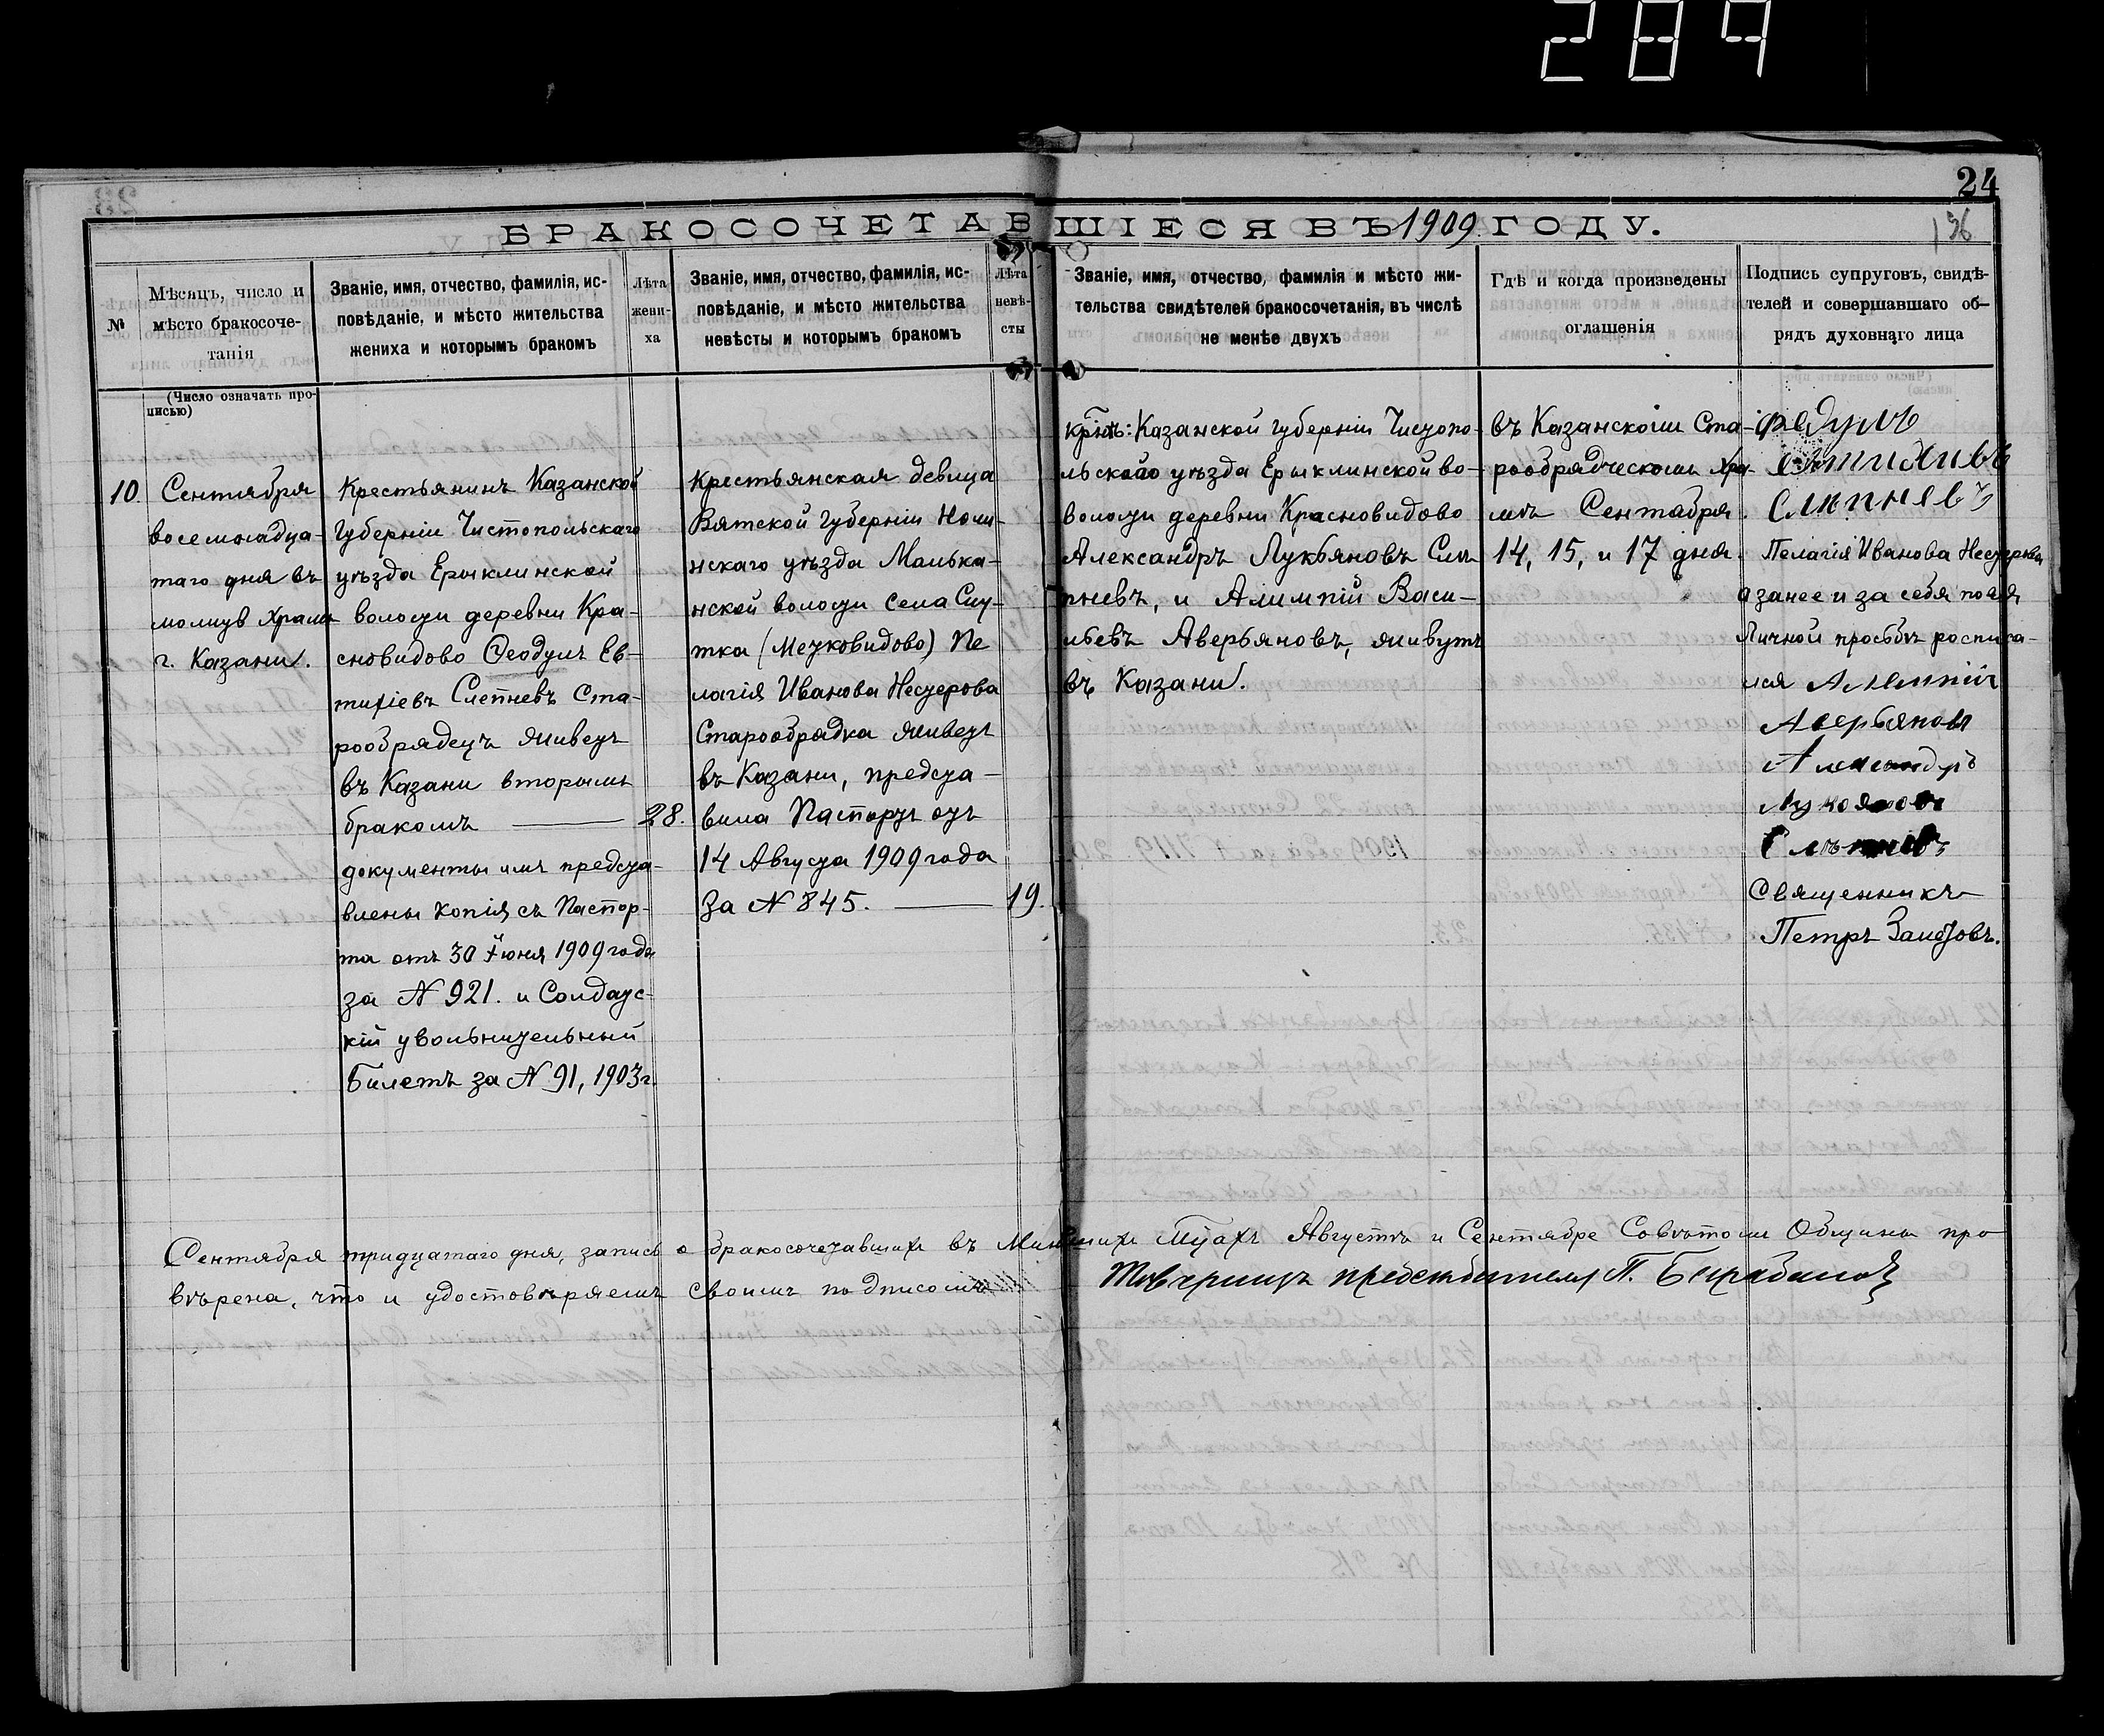 289
24
136
БРАКОСОЧЕТАВШІЕСЯ ВЪ 1909 ГОДУ.
№
Мѣсяцъ, число и
мѣсто бракосоче-
танія
Званіе, имя, отчество, фамилія, ис-
повѣданіе, и мѣсто жительства
жениха и которымъ бракомъ
Лѣта
жени-
ха
Званіе, имя, отчество, фамилія, ис-
повѣданіе, и мѣсто жительства
невѣсты и которымъ бракомъ
Лѣта
невѣ-
сты
Званіе, имя, отчество, фамилія и мѣсто жи-
тельства свидѣтелей бракосочетанія, въ числѣ
не менѣе двухъ
Гдѣ и когда произведены
оглашенія
Подпись супруговъ, свидѣ-
телей и совершавшаго об-
рядъ духовнаго лица
(Число означать про-
писью)
10.
Сентября
восемнадца-
таго дня въ
молитв Храмѣ
г. Казани.
Крестьянинъ Казанской
Губерніи Чистопольскаго
уѣзда Ерыклинской
волости деревни Кра-
сновидово Ѳеодулъ Ев-
тихіевъ Слепневъ Ста-
рообрядецъ живетъ
въ Казани вторымъ
бракомъ
документы имъ предста-
влены копія съ Паспор-
та отъ 30 Іюня 1909 года
за N 921. и Солдатс-
кій увольнительный
Билетъ за N 91, 1903 г.
28.
Крестьянская девица
Вятской Губерніи Ноли-
нскаго уѣзда Малька-
нской волости Села Сит-
тка (Метковидово) Пе
лагія Иванова Нестерова
Старообрядка живетъ
въ Казани, предста-
вила Паспортъ отъ
14 Августа 1909 года
За N 845.
19.
Казанской Губерніи Чистопо-
льскаго уѣзда Ерыклинской во-
лости деревни Красновидово
Александръ Лукьяновъ Слѣ
пневъ, и Алимпій Васи-
льевъ Аверьяновъ, живутъ
въ Казани.
въ Казанскомъ Ста-
рообрядческомъ Хра-
мѣ Сентября
14, 15, и 17 дня.
Федулъ
Слипневъ
Пелагія Иванова Нестерова
а занее и за себя по ея
Личной просьбѣ росписа-
лся Алимпій
Аверьяновъ
Александръ
Лукояновъ
Слѣпневъ
Священникъ
Петръ Залѣтовъ.
Сентября тридцатаго дня, запись о бракосочетавшихся въ Августѣ и Сентябре Совѣтомъ Общины про
вѣрена, что и удостовѣряемъ своимъ подписомъ
Товарищъ председателя П. Барабанов